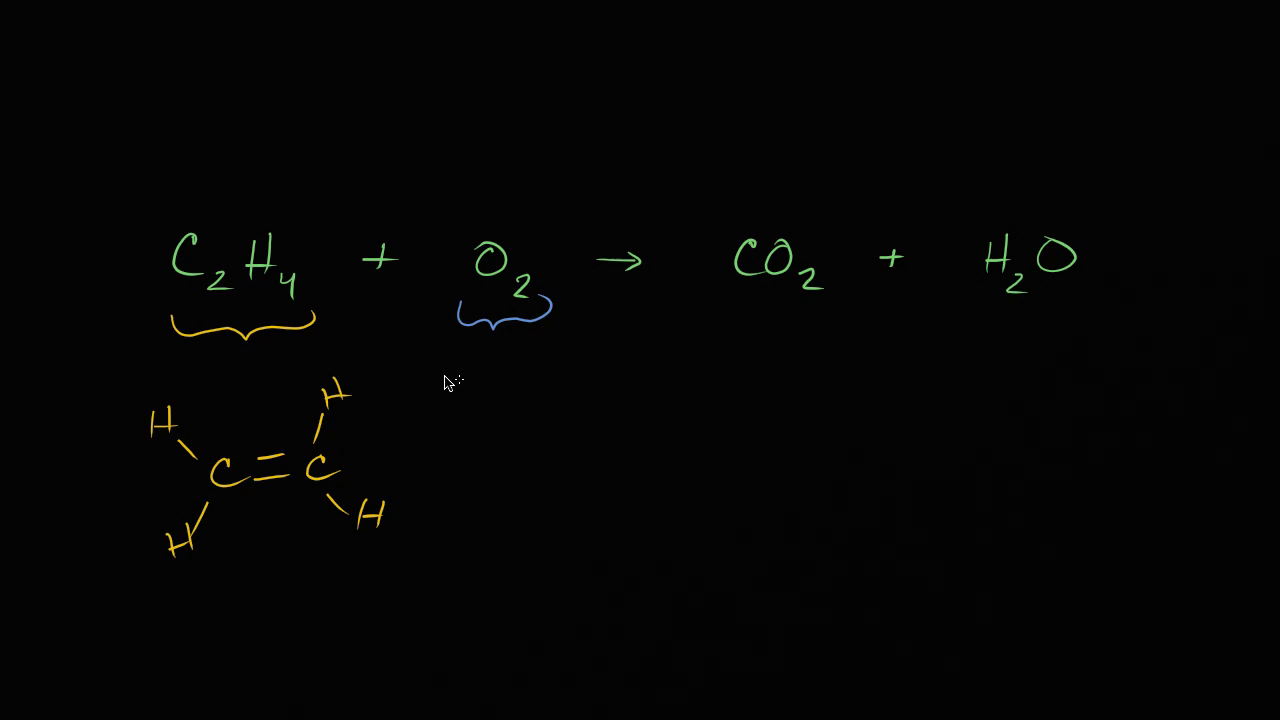 C₂H₄ + O₂ → CO₂ + H₂O
H
H
C = C
H
H